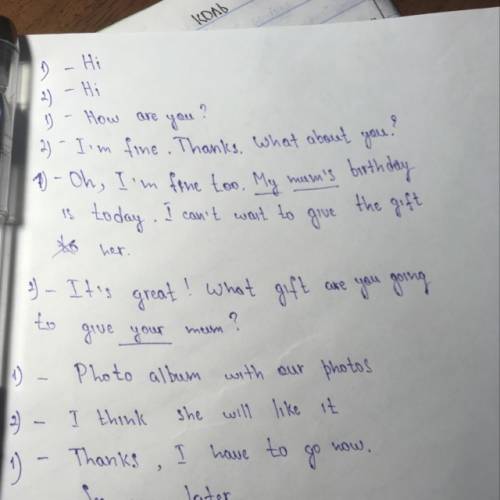 КОЛЬ
1) - Hi
2) - Hi
1) - How are you?
2) - I'm fine. Thanks. What about you?
1) - Oh, I'm fine too. My mum's birthday
is today. I can't wait to give the gift
her.
2) - It's great! What gift are you going
to give your mum?
1) - Photo album with our photos
2) - I think she will like it
1) - Thanks, I have to go now.
later